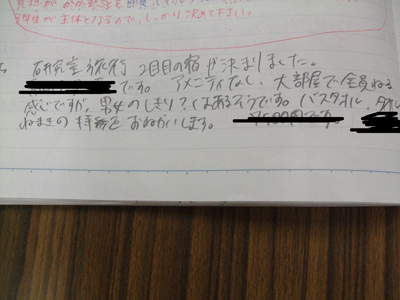 具生が主体となるので、しっかり決めて下さい。
研究室旅行 2日目の宿が決まりました。
です。アメニティなし、大部屋で全員ねる
感じですが、男女のしきり?はあるそうです。バスタオル、タオル
ねまきの持参をおねがいします。